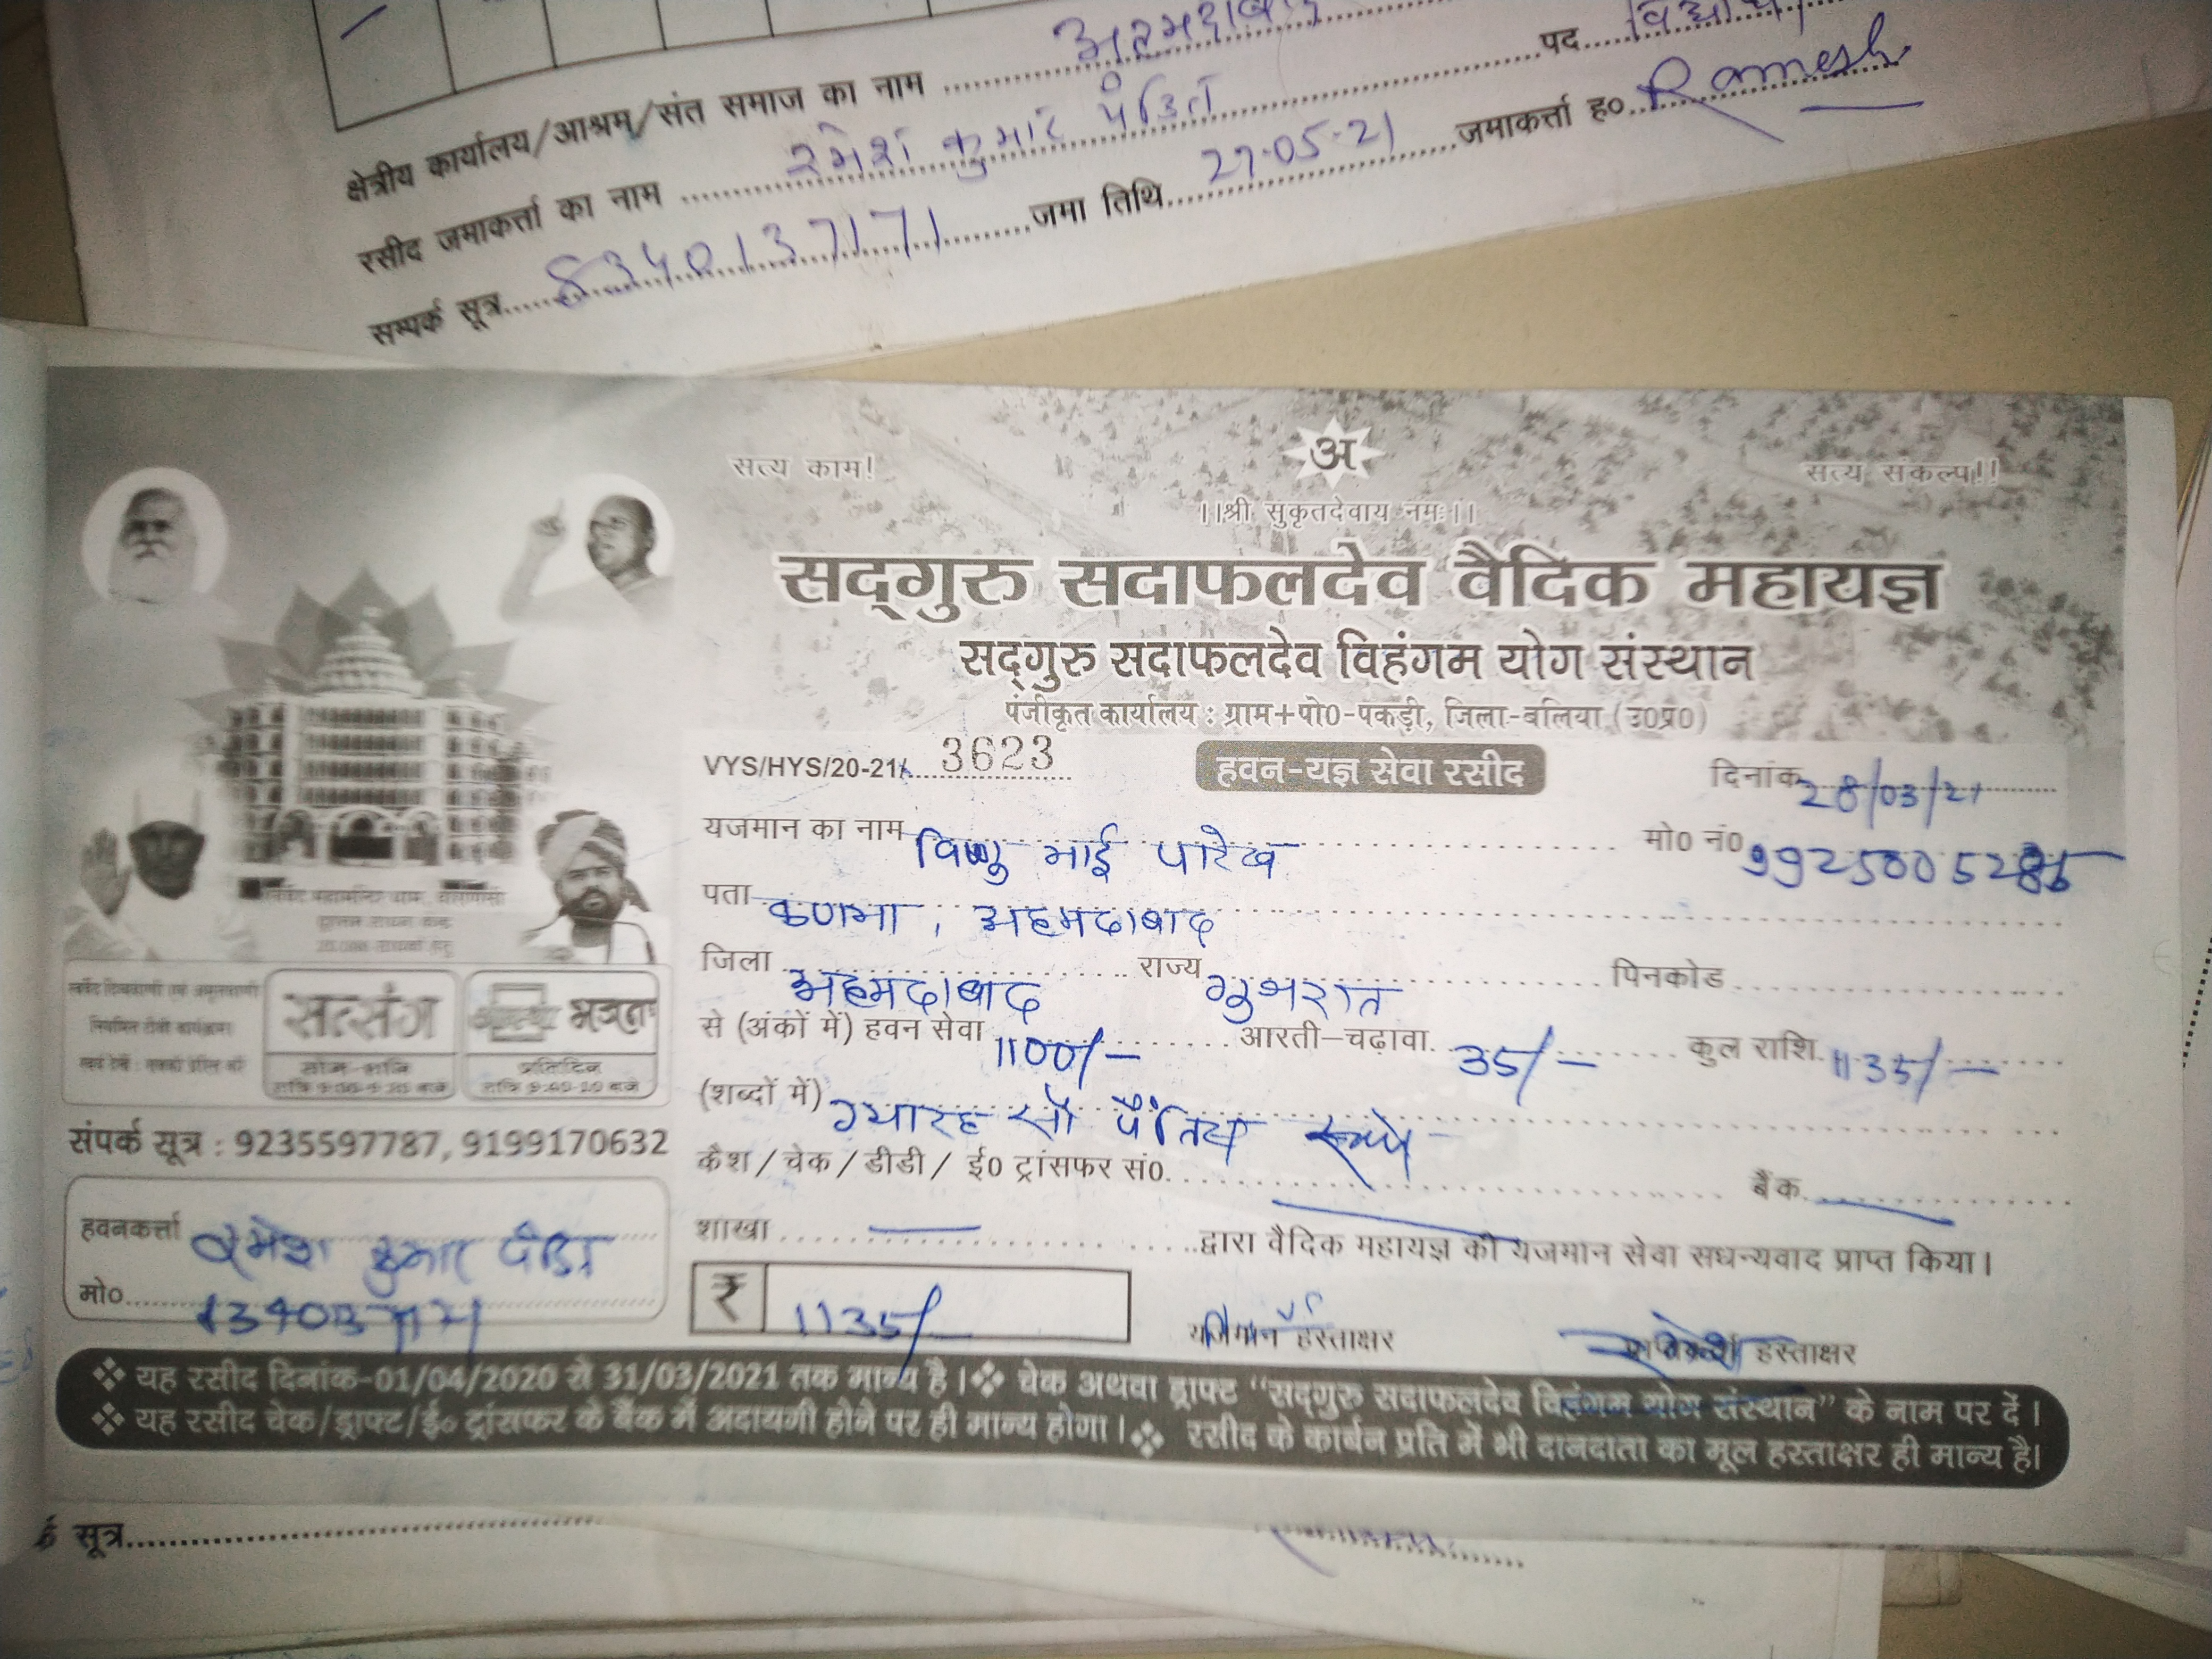 अहमदाबाद पद
क्षेत्रीय कार्यालय/आश्रम/संत समाज का नाम
रसीद जमाकर्त्ता का नाम रमेश कुमार पंडित
सम्पर्क सूत्र 8340137171 जमा तिथि 27-05-21 जमाकर्त्ता ह० Ramesh
सत्य काम! अ सत्य संकल्प!!
।।श्री सुकृतदेवाय नमः।।
सद्‌गुरु सदाफलदेव वैदिक महायज्ञ
सद्‌गुरु सदाफलदेव विहंगम योग संस्थान
पंजीकृत कार्यालय : ग्राम+पो0-पकड़ी, जिला-बलिया (उ0प्र0)
VYS/HYS/20-21/ 3623 हवन-यज्ञ सेवा रसीद दिनांक 28/03/21
यजमान का नाम विष्णु भाई पारेख मो0 नं0
पता कणभा, अहमदाबाद
जिला अहमदाबाद राज्य गुजरात पिनकोड
से (अंकों में) हवन सेवा 1100/- आरती-चढ़ावा 35/- कुल राशि 1135/-
(शब्दों में) ग्यारह सौ पैंतिस रूपये
कैश/चेक/डीडी/ ई0 ट्रांसफर सं0 बैंक
शाखा द्वारा वैदिक महायज्ञ की यजमान सेवा सधन्यवाद प्राप्त किया।
₹ 1135/-
यजमान हस्ताक्षर हस्ताक्षर
सत्संग
सोम-शनि
प्रतिदिन
संपर्क सूत्र : 9235597787, 9199170632
हवनकर्त्ता रमेश कुमार पंडित
मो०
❖ यह रसीद दिनांक-01/04/2020 से 31/03/2021 तक मान्य है।❖ चेक अथवा ड्राफ्ट "सद्‌गुरु सदाफलदेव विहंगम योग संस्थान" के नाम पर दें।
❖ यह रसीद चेक/ड्राफ्ट/ई० ट्रांसफर के बैंक में अदायगी होने पर ही मान्य होगा।❖ रसीद के कार्बन प्रति में भी दानदाता का मूल हस्ताक्षर ही मान्य है।
सूत्र